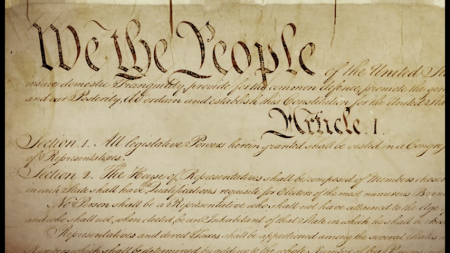 We the People of the United Sta
insure domestic Tranquility, provide for the common defence, promote the gen
and our Posterity, do ordain and establish this Constitution for the United Sta
Article. I.
Section. 1. All legislative Powers herein granted shall be vested in a Congre
of Representatives.
Section. 2. The House of Representatives shall be composed of Members chose
in each State shall have Qualifications requisite for Electors of the most numerous Bran
No Person shall be a Representative who shall not have attained to the Age
and who shall not, when elected, be an Inhabitant of that State in which he shall be
Representatives and direct Taxes shall be apportioned among the several States
Numbers, which shall be determined by adding to the whole Number of